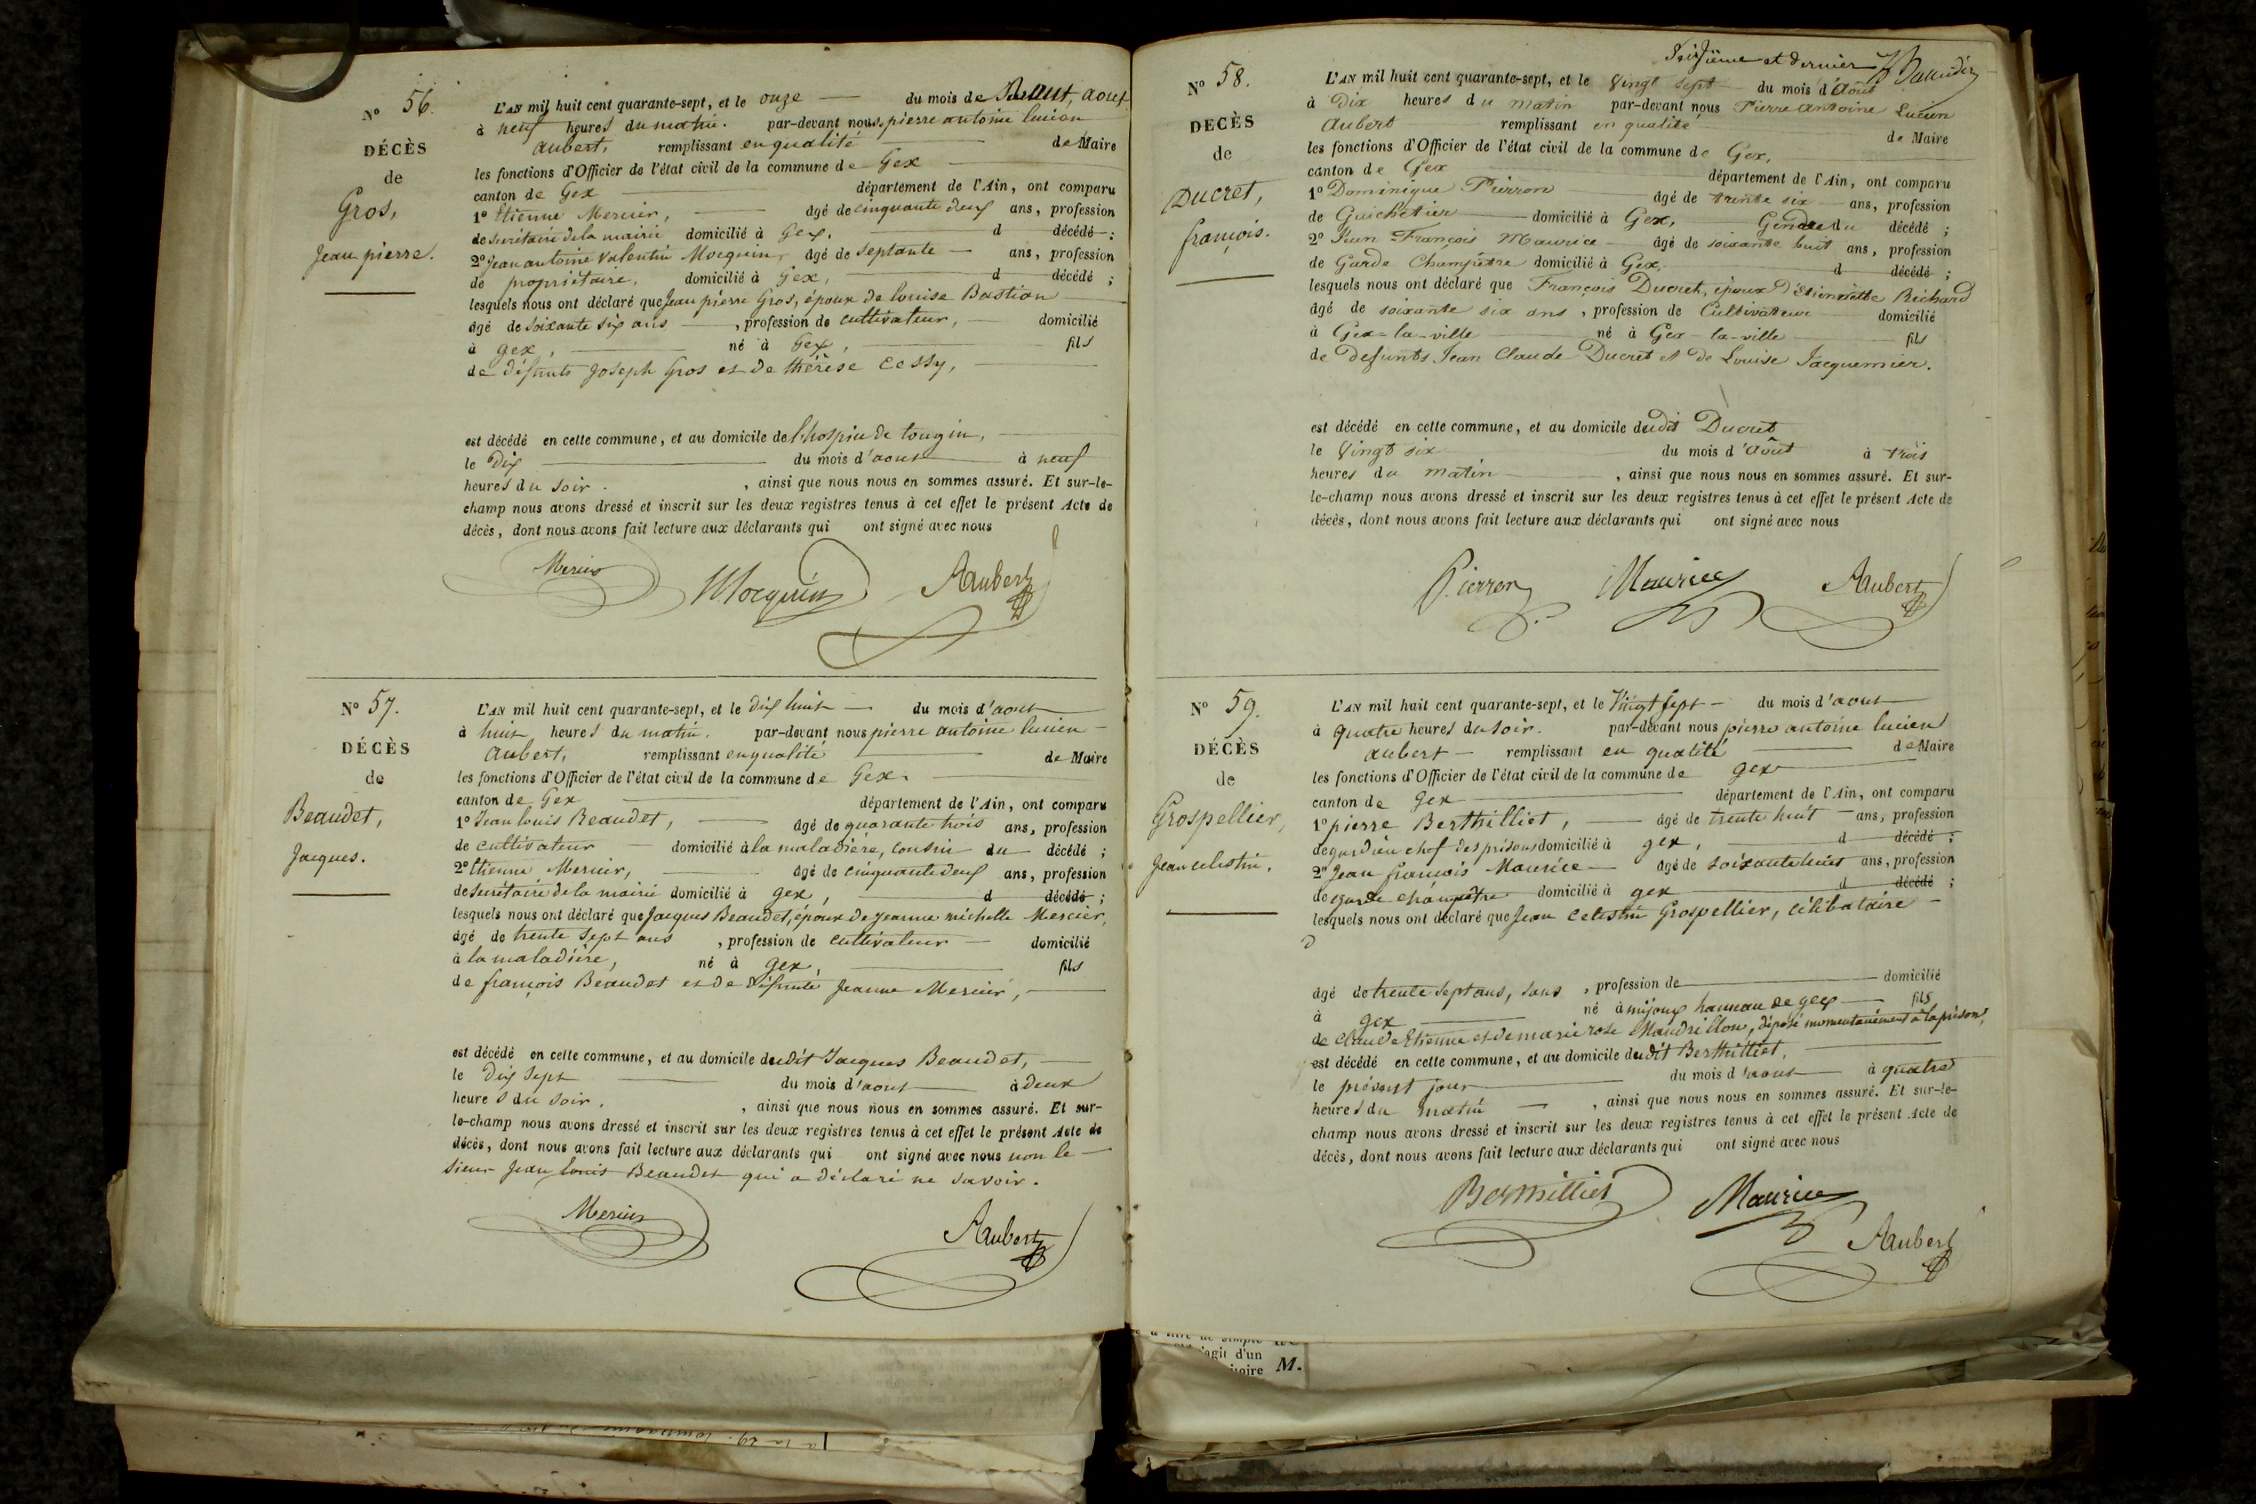 N° 56.
DÉCÈS
de
Gros,
Jean pierre.
L'AN mil huit cent quarante-sept, et le onze du mois de aout
à neuf heures du matin. par-devant nous pierre antoine lucien
aubert, remplissant en qualité de Maire
les fonctions d'Officier de l'état civil de la commune de Gex
canton de Gex département de l'Ain, ont comparu
1° Etienne Mercier, âgé de cinquante deux ans, profession
de secrétaire de la mairie domicilié à Gex, d décédé ;
2° Jean antoine Valentin Mocquin, âgé de septante ans, profession
de propriétaire, domicilié à Gex, d décédé ;
lesquels nous ont déclaré que Jean pierre Gros, époux de louise Bastian
âgé de soixante six ans, profession de cultivateur, domicilié
à gex, né à Gex, fils
de défunts Joseph Gros et de thérèse Cessy,
est décédé en cette commune, et au domicile de l'hospice de tougin,
le Dix du mois d'aout à neuf
heures du soir. , ainsi que nous nous en sommes assuré. Et sur-le-
champ nous avons dressé et inscrit sur les deux registres tenus à cet effet le présent Acte de
décès, dont nous avons fait lecture aux déclarants qui ont signé avec nous
Mercier Mocquin Aubert
N° 57.
DÉCÈS
de
Beaudet,
Jacques.
L'AN mil huit cent quarante-sept, et le dix huit du mois d'aout
à huit heures du matin. par-devant nous pierre antoine lucien
aubert, remplissant en qualité de Maire
les fonctions d'Officier de l'état civil de la commune de Gex.
canton de Gex département de l'Ain, ont comparu
1° Jean louis Beaudet, âgé de quarante trois ans, profession
de cultivateur domicilié à la maladière, cousin du décédé ;
2° Etienne Mercier, âgé de cinquante deux ans, profession
de secrétaire de la mairie domicilié à gex, d décédé ;
lesquels nous ont déclaré que Jacques Beaudet, époux de jeanne michelle Mercier,
âgé de trente sept ans , profession de cultivateur domicilié
à la maladière, né à gex, fils
de françois Beaudet et de défunte Jeanne Mercier,
est décédé en cette commune, et au domicile dudit Jacques Beaudet,
le Dix sept du mois d'aout à Deux
heures du soir. , ainsi que nous nous en sommes assuré. Et sur-
le-champ nous avons dressé et inscrit sur les deux registres tenus à cet effet le présent Acte de
décès, dont nous avons fait lecture aux déclarants qui ont signé avec nous non le
sieur Jean louis Beaudet qui a déclaré ne savoir.
Mercier Aubert
et dernier
N° 58.
DECÈS
de
Ducret,
françois.
L'AN mil huit cent quarante-sept, et le Vingt sept du mois d'Août
à Dix heures du matin par-devant nous Pierre Antoine Lucien
Aubert remplissant en qualité de Maire
les fonctions d'Officier de l'état civil de la commune de Gex,
canton de Gex département de l'Ain, ont comparu
1° Dominique Pierron âgé de trente six ans, profession
de Guichetier domicilié à Gex, Gendre du décédé ;
2° Jean François Maurice âgé de soixante huit ans, profession
de Garde Champêtre domicilié à Gex, d décédé ;
lesquels nous ont déclaré que François Ducret, époux d'Etiennette Richard
âgé de soixante six ans , profession de Cultivateur domicilié
à Gex-la-ville né à Gex-la-ville fils
de Defunts Jean Claude Ducret et de Louise Jacquemier.
est décédé en cette commune, et au domicile dudit Ducret
le Vingt six du mois d'Août à trois
heures du matin , ainsi que nous nous en sommes assuré. Et sur-
le-champ nous avons dressé et inscrit sur les deux registres tenus à cet effet le présent Acte de
décès, dont nous avons fait lecture aux déclarants qui ont signé avec nous
Pierron Maurice Aubert
N° 59.
DÉCÈS
de
Grospellier,
Jean celestin.
L'AN mil huit cent quarante-sept, et le Vingt sept du mois d'aout
à quatre heures du soir. par-devant nous pierre antoine lucien
aubert remplissant en qualité de Maire
les fonctions d'Officier de l'état civil de la commune de gex
canton de gex département de l'Ain, ont comparu
1° pierre Berthilliet, âgé de trente huit ans, profession
de gardien chef des prisons domicilié à gex, d décédé ;
2° Jean françois Maurice âgé de soixante huit ans, profession
de garde champêtre domicilié à gex d décédé ;
lesquels nous ont déclaré que Jean Celestin Grospellier, célibataire
âgé de trente sept ans, sans , profession de domicilié
à gex né à mijoux hameau de gex fils
de Claude Etienne et de marie rose Maudrillon, déposé momentanément à la prison,
est décédé en cette commune, et au domicile dudit Berthilliet,
le présent jour du mois d'aout à quatre
heures du matin , ainsi que nous nous en sommes assuré. Et sur-le-
champ nous avons dressé et inscrit sur les deux registres tenus à cet effet le présent Acte de
décès, dont nous avons fait lecture aux déclarants qui ont signé avec nous
Berthilliet Maurice
Aubert
agit d'un
M.